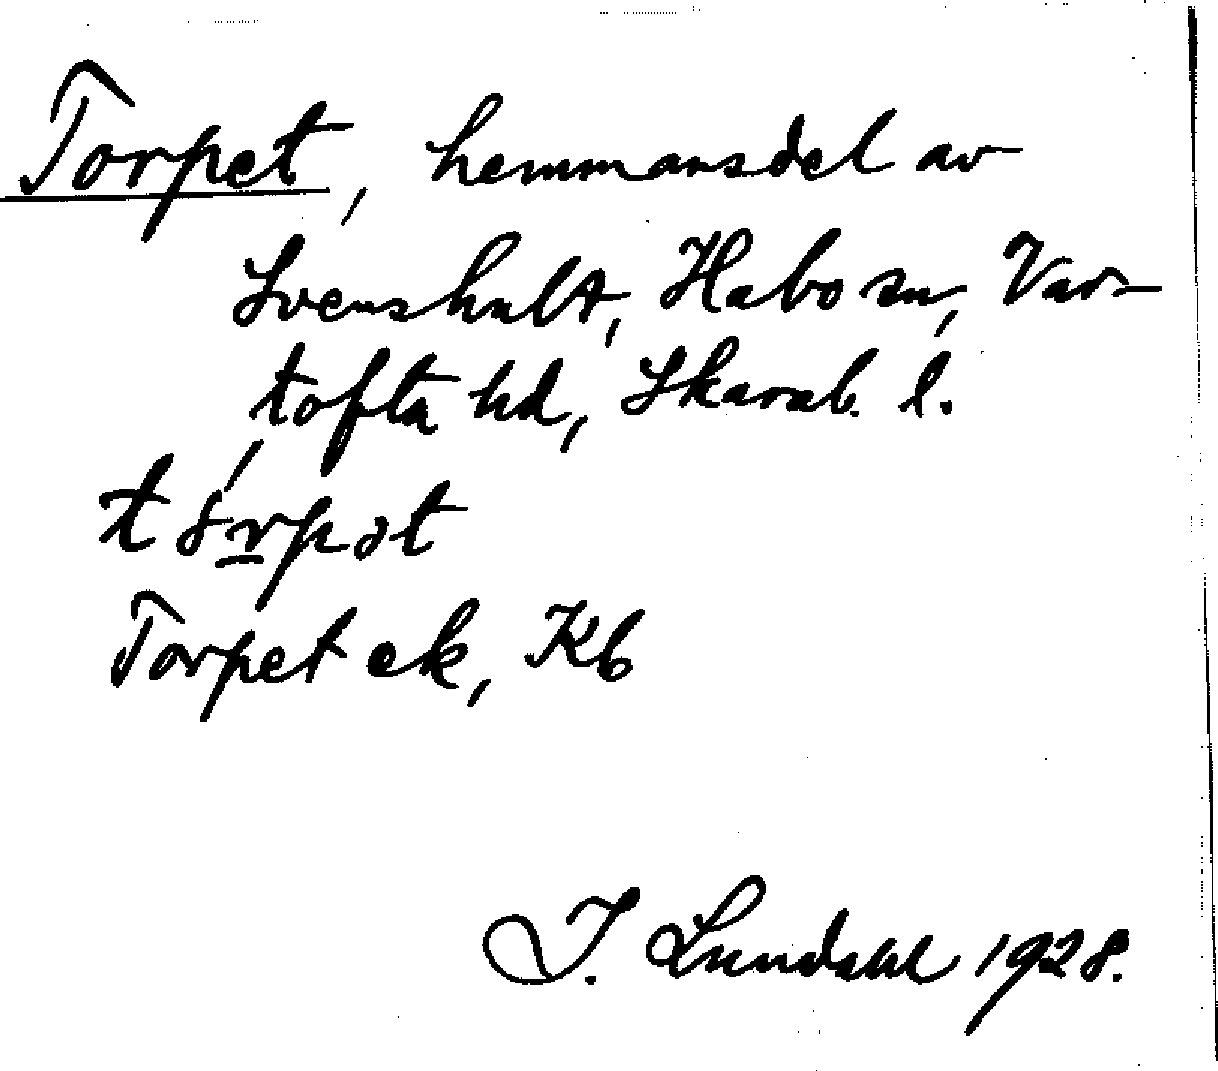 Torpet, hemmansdel av
Svenshult, Habo sn, Var-
tofta hd, Skarab. l.
tórpət
Torpet ek, Kb
I. Lundahl 1928.